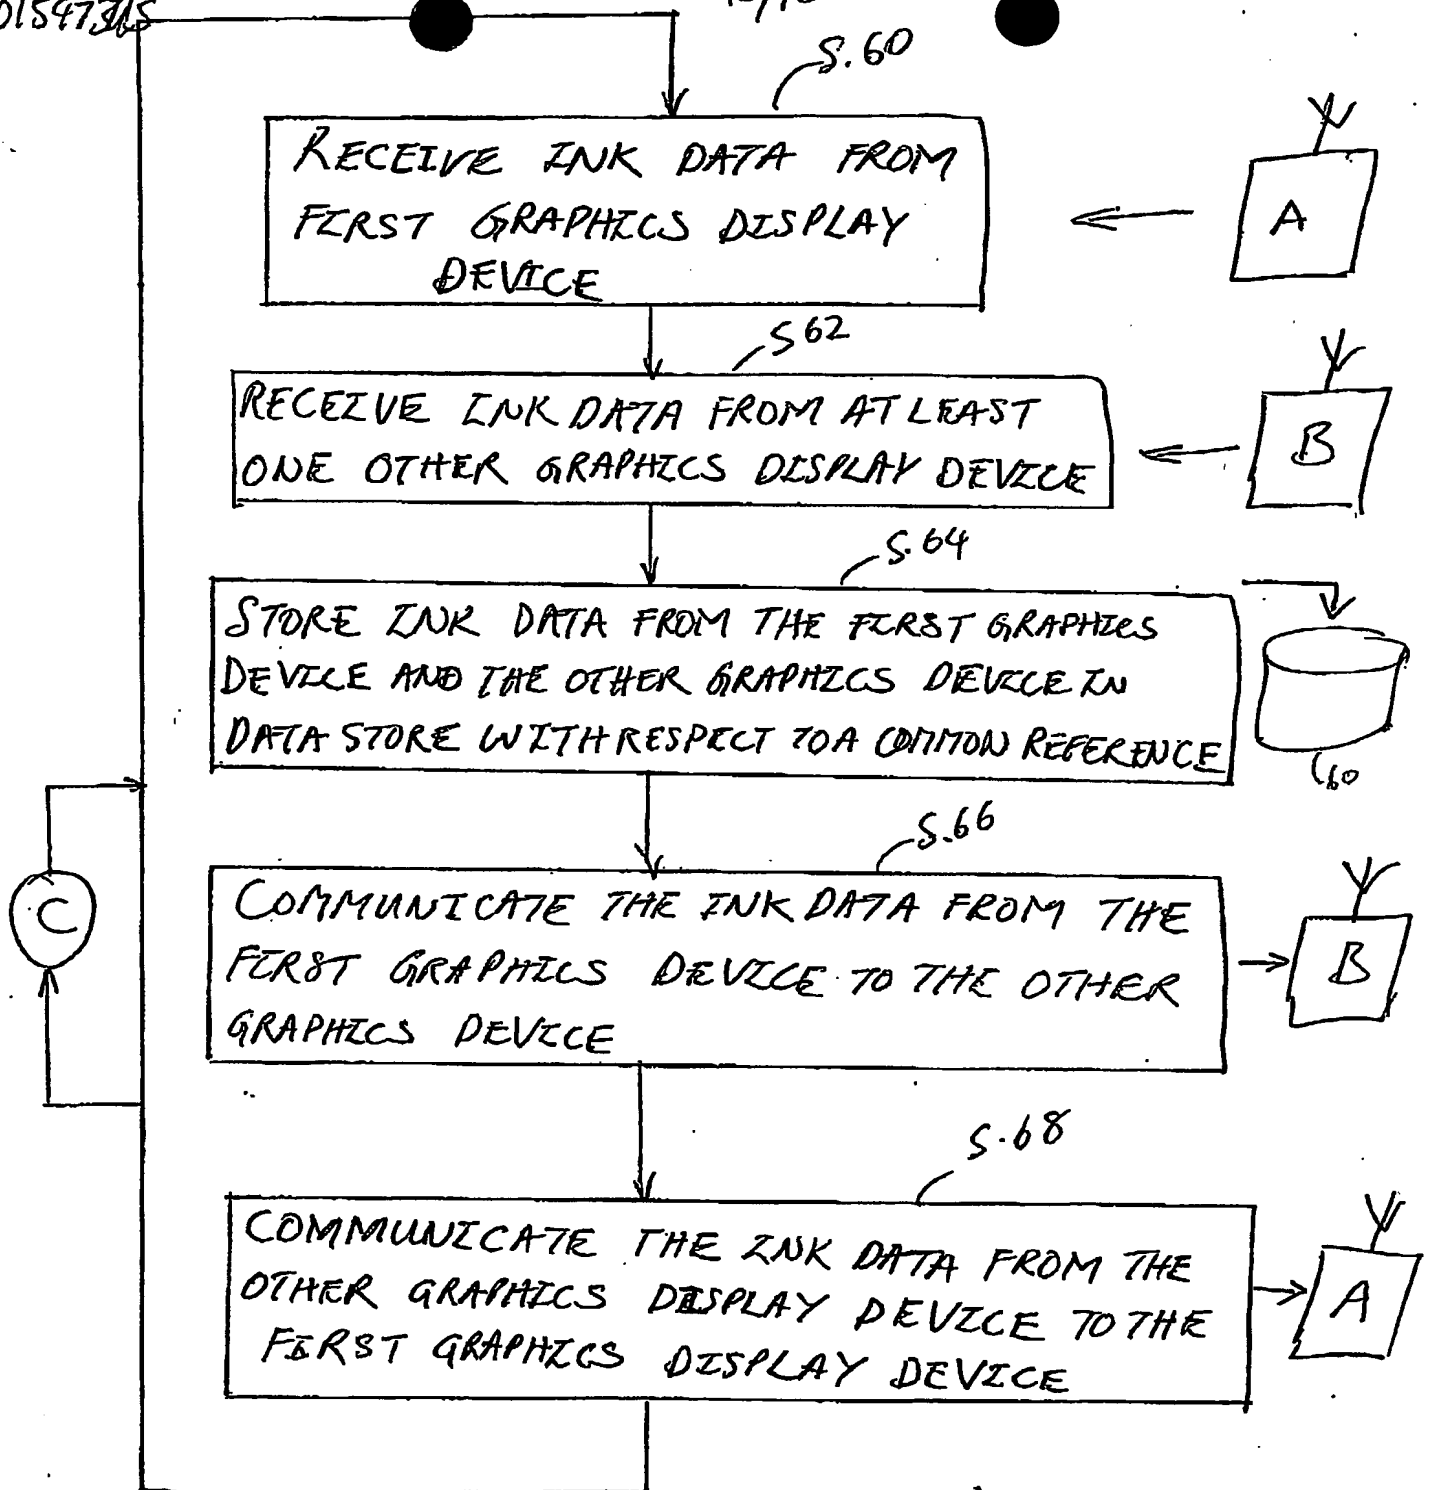 S.60
RECEIVE INK DATA FROM
FIRST GRAPHICS DISPLAY
DEVICE
A
S62
RECEIVE INK DATA FROM AT LEAST
ONE OTHER GRAPHICS DISPLAY DEVICE
B
S.64
STORE INK DATA FROM THE FIRST GRAPHICS
DEVICE AND THE OTHER GRAPHICS DEVICE IN
DATA STORE WITH RESPECT TO A COMMON REFERENCE
60
S.66
COMMUNICATE THE INK DATA FROM THE
FIRST GRAPHICS DEVICE TO THE OTHER
GRAPHICS DEVICE
B
C
S.68
COMMUNICATE THE INK DATA FROM THE
OTHER GRAPHICS DISPLAY DEVICE TO THE
FIRST GRAPHICS DISPLAY DEVICE
A